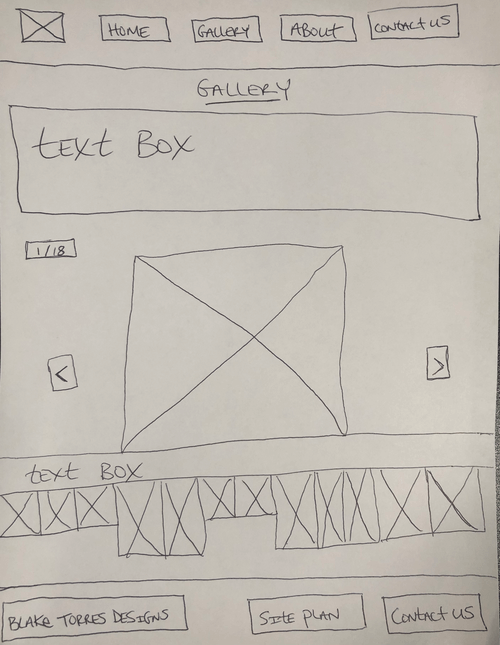 HOME GALLERY ABOUT CONTACT US
GALLERY
TEXT BOX
1/18
< >
TEXT BOX
BLAKE TORRES DESIGNS SITE PLAN CONTACT US